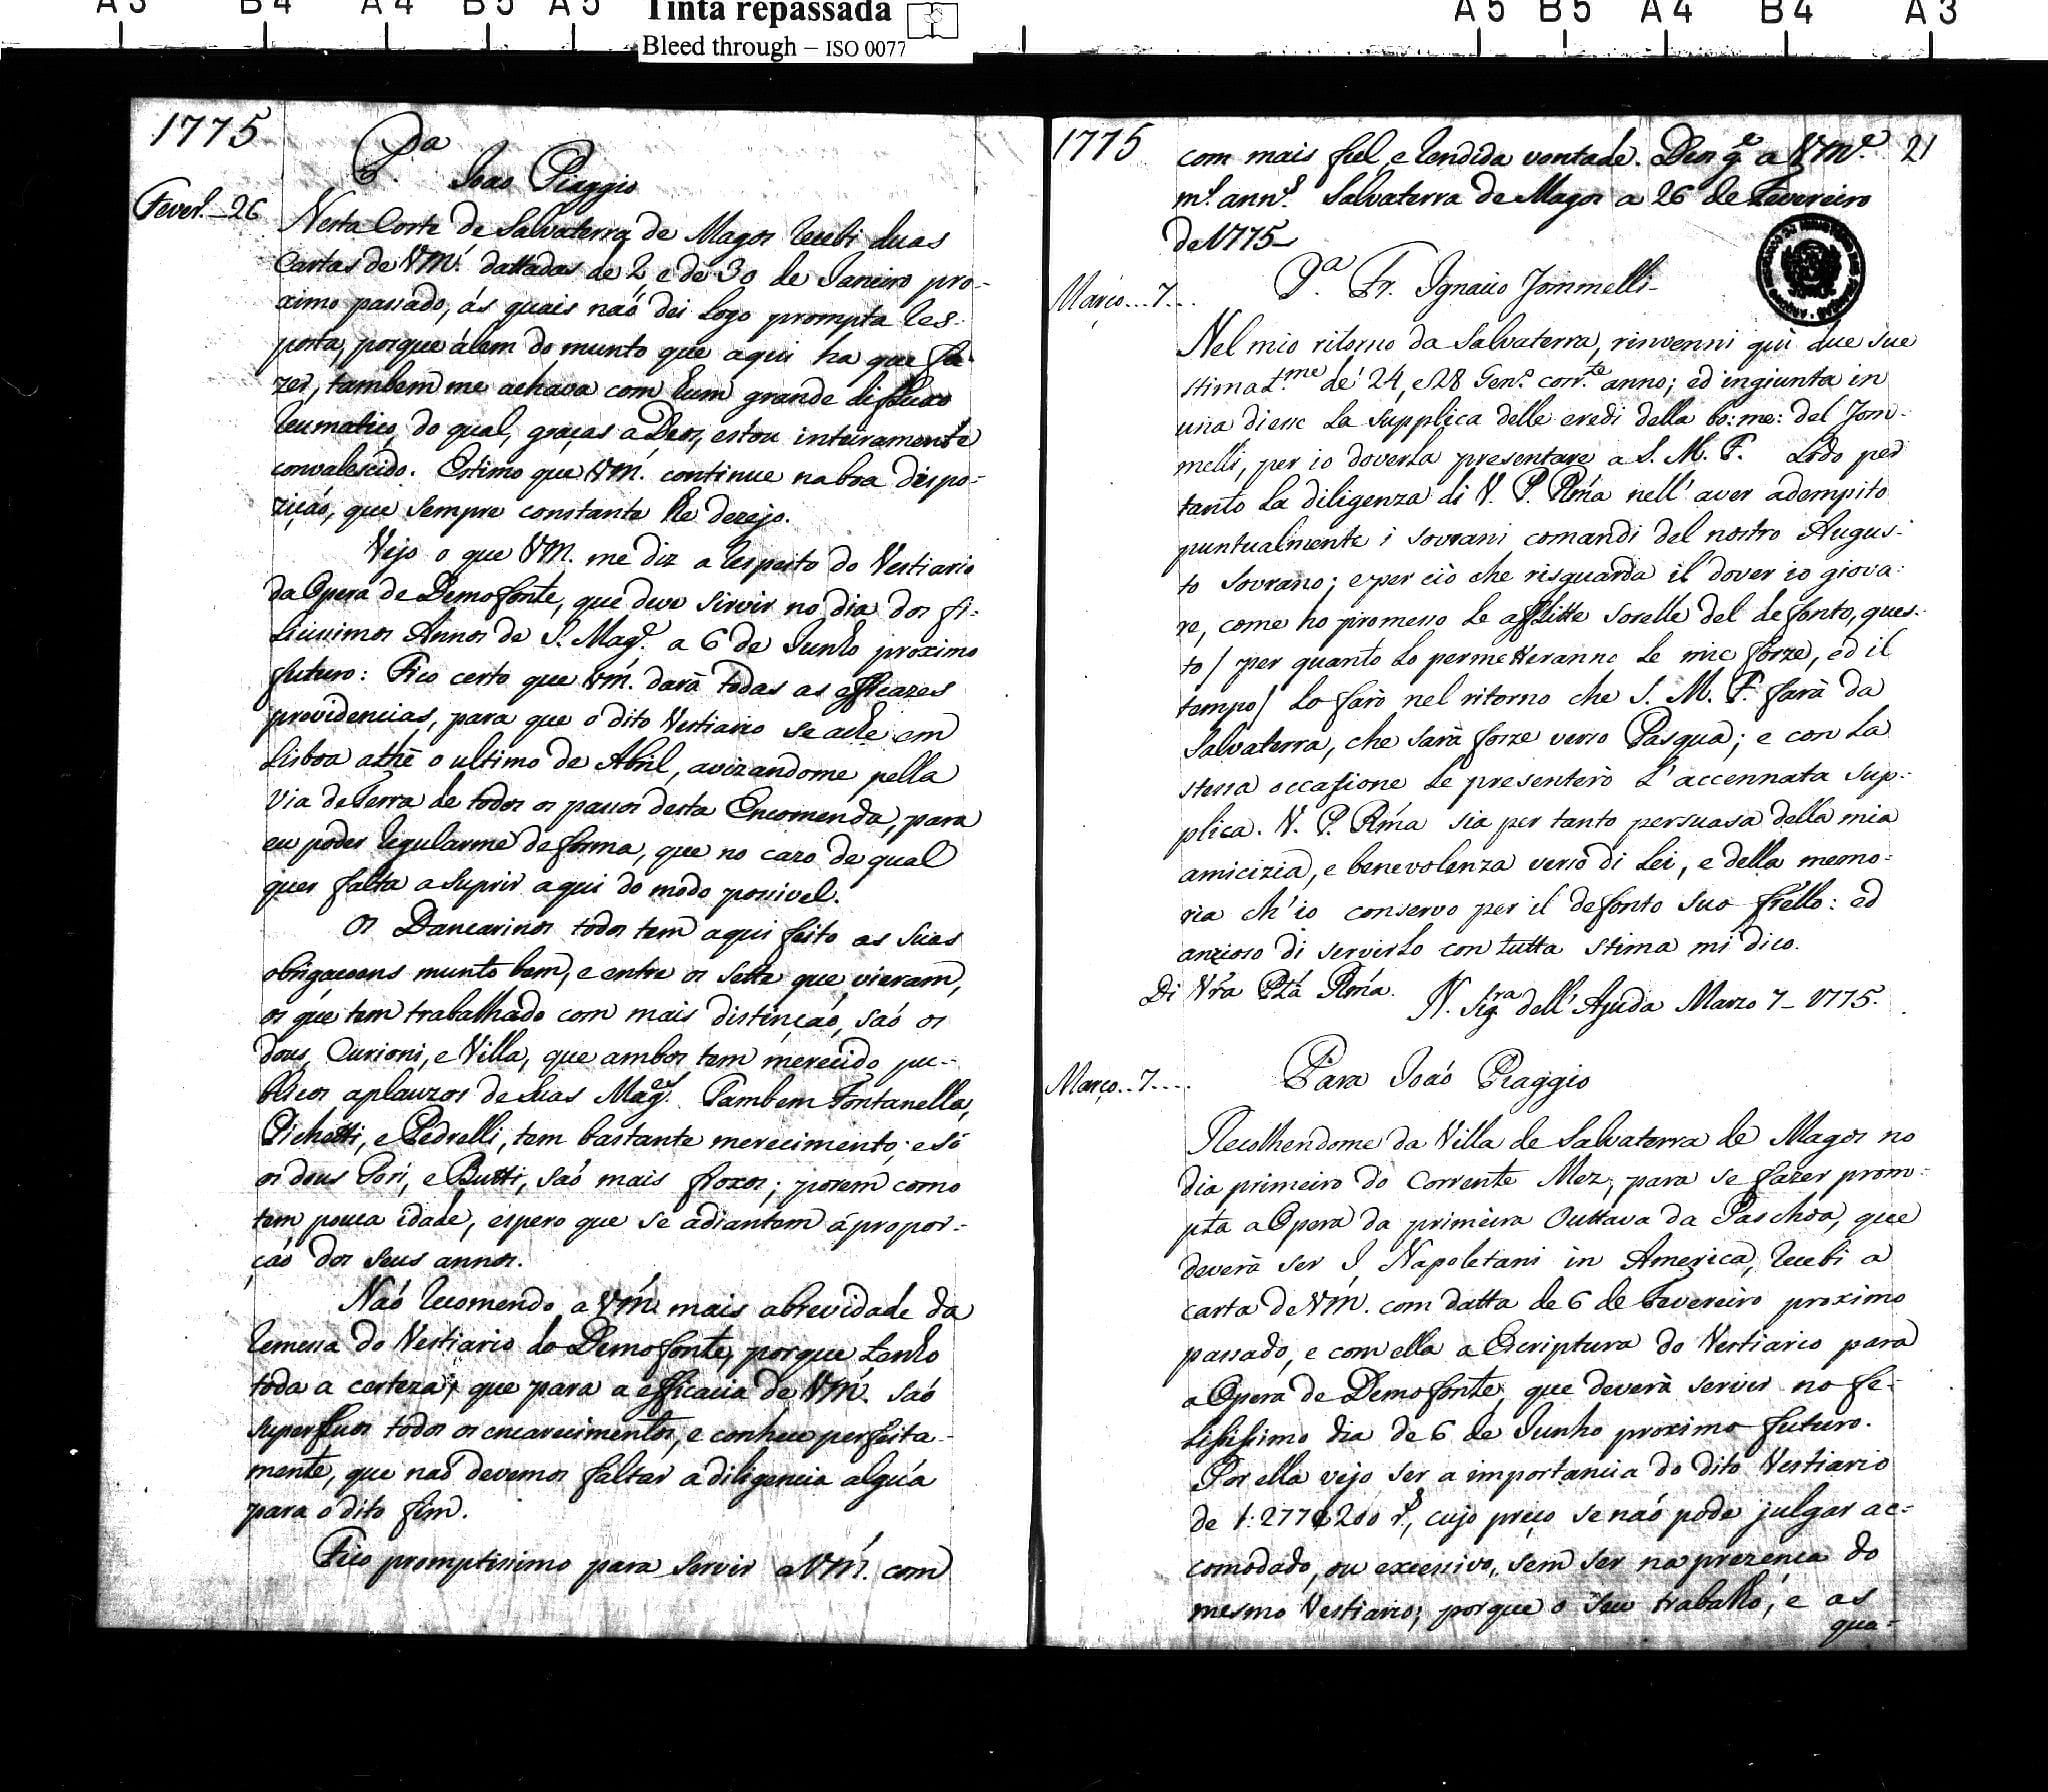 A3 B4 A4 B5 A5
Tinta repassada
Bleed through – ISO 0077
A5 B5 A4 B4 A3
1775
P.ª João Piaggio
Fever.º 26
Nesta Corte de Salvaterra de Magos recebi duas
Cartas de VM.ce dattadas de 2, e de 30 de Janeiro pro-
ximo passado, ás quais naõ dei logo prompta res-
posta, porque além do munto que aqui ha que fa-
zer, tambem me achava com hum grande defluxo
reumatico, do qual, graças a Deos, estou inteiramente
convalescido. Estimo que VM. continue na boa dispo-
ziçaõ, que sempre constante lhe dezejo.
Vejo o que VM. me diz a respeito do Vestiario
da Opera de Demofonte, que deve servir no dia dos fe-
licissimos Annos de S. Mag.e a 6 de Junho proximo
futuro: Fico certo que VM. dará todas as efficazes
providencias, para que o dito Vestiario se ache em
Lisboa athé o ultimo de Abril, avizandome pella
via de Terra de todos os passos desta Encomenda, para
eu poder regularme de forma, que no cazo de qual
quer falta a suprir aqui do modo possivel.
Os Dancarinos todos tem aqui feito as suas
obrigacoens munto bem, e entre os sette que vieram,
os que tem trabalhado com mais distinçaõ, saõ os
dous, Curioni, e Villa, que ambos tem merecido pu-
blicos aplauzos de Suas Mag.es Tambem Fontanella,
Pichetti, e Pedrelli, tem bastante merecimento; e só
os dous Gori, e Butti, saõ mais froxos; porem como
tem pouca idade, espero que se adiantem á propor-
çaõ dos seus annos.
Naõ recomendo a VM. mais a brevidade da
remessa do Vestiario do Demofonte, porque tenho
toda a certeza, que para a efficacia de VM. saõ
superfluos todos os encarecimentos, e conhece perfeita-
mente, que naõ devemos faltar a diligencia algũa
para o dito fim.
Fico promptissimo para servir a VM. com
1775
21
com mais fiel, e rendida vontade. Deos g.e a VM.ce
m.s ann.s Salvaterra de Magos a 26 de Fevereiro
de 1775
P.ª Fr. Ignacio Jommelli
Março...7...
Nel mio ritorno da Salvaterra, rinvenni qui due sue
stimat.me de' 24, e 28 Gen.º corr.te anno; ed ingiunta in
una d'esse la supplica delle eredi della bo: me: del Jom-
melli, per io doverla presentare a S. M. F. Lodo per
tanto la diligenza di V. P. Rma nell' aver adempito
puntualmente i sovrani comandi del nostro Augus-
to Sovrano; e per ciò che risguarda il dover io giova-
re, come ho promesso le afflitte sorelle del defonto, ques-
to / per quanto lo permetteranno le mie forze, ed il
tempo / lo farò nel ritorno che S. M. F. farà da
Salvaterra, che sarà forze verso Pasqua; e con la
stessa occasione le presenterò l'accennata sup-
plica. V. P. Rma sia per tanto persuasa della mia
amicizia, e benevolenza verso di Lei, e della memo-
ria ch'io conservo per il defonto suo frello: ed
anzioso di servirlo con tutta stima mi dico.
Di Vra Ptà Rma. N. Sig.ra dell' Ajuda Marzo 7 - 1775.
Março..7....
Para Joaõ Piaggio
Recolhendome da Villa de Salvaterra de Magos no
dia primeiro do corrente Mez, para se fazer prom-
pta a Opera da primeira Outtava da Paschoa, que
deverà ser I Napoletani in America, recebi a
carta de VM. com datta de 6 de Fevereiro proximo
passado, e com ella a Escriptura do Vestiario para
a Opera de Demofonte, que deverà servir no fe-
lississimo dia de 6 de Junho proximo futuro.
Por ella vejo ser a importancia do dito Vestiario
de 1:277$200 r.s, cujo preço se naõ pode julgar ac-
comodado, ou excessivo, sem ser na prezença do
mesmo Vestiario; porque o seu trabalho, e as
qua-